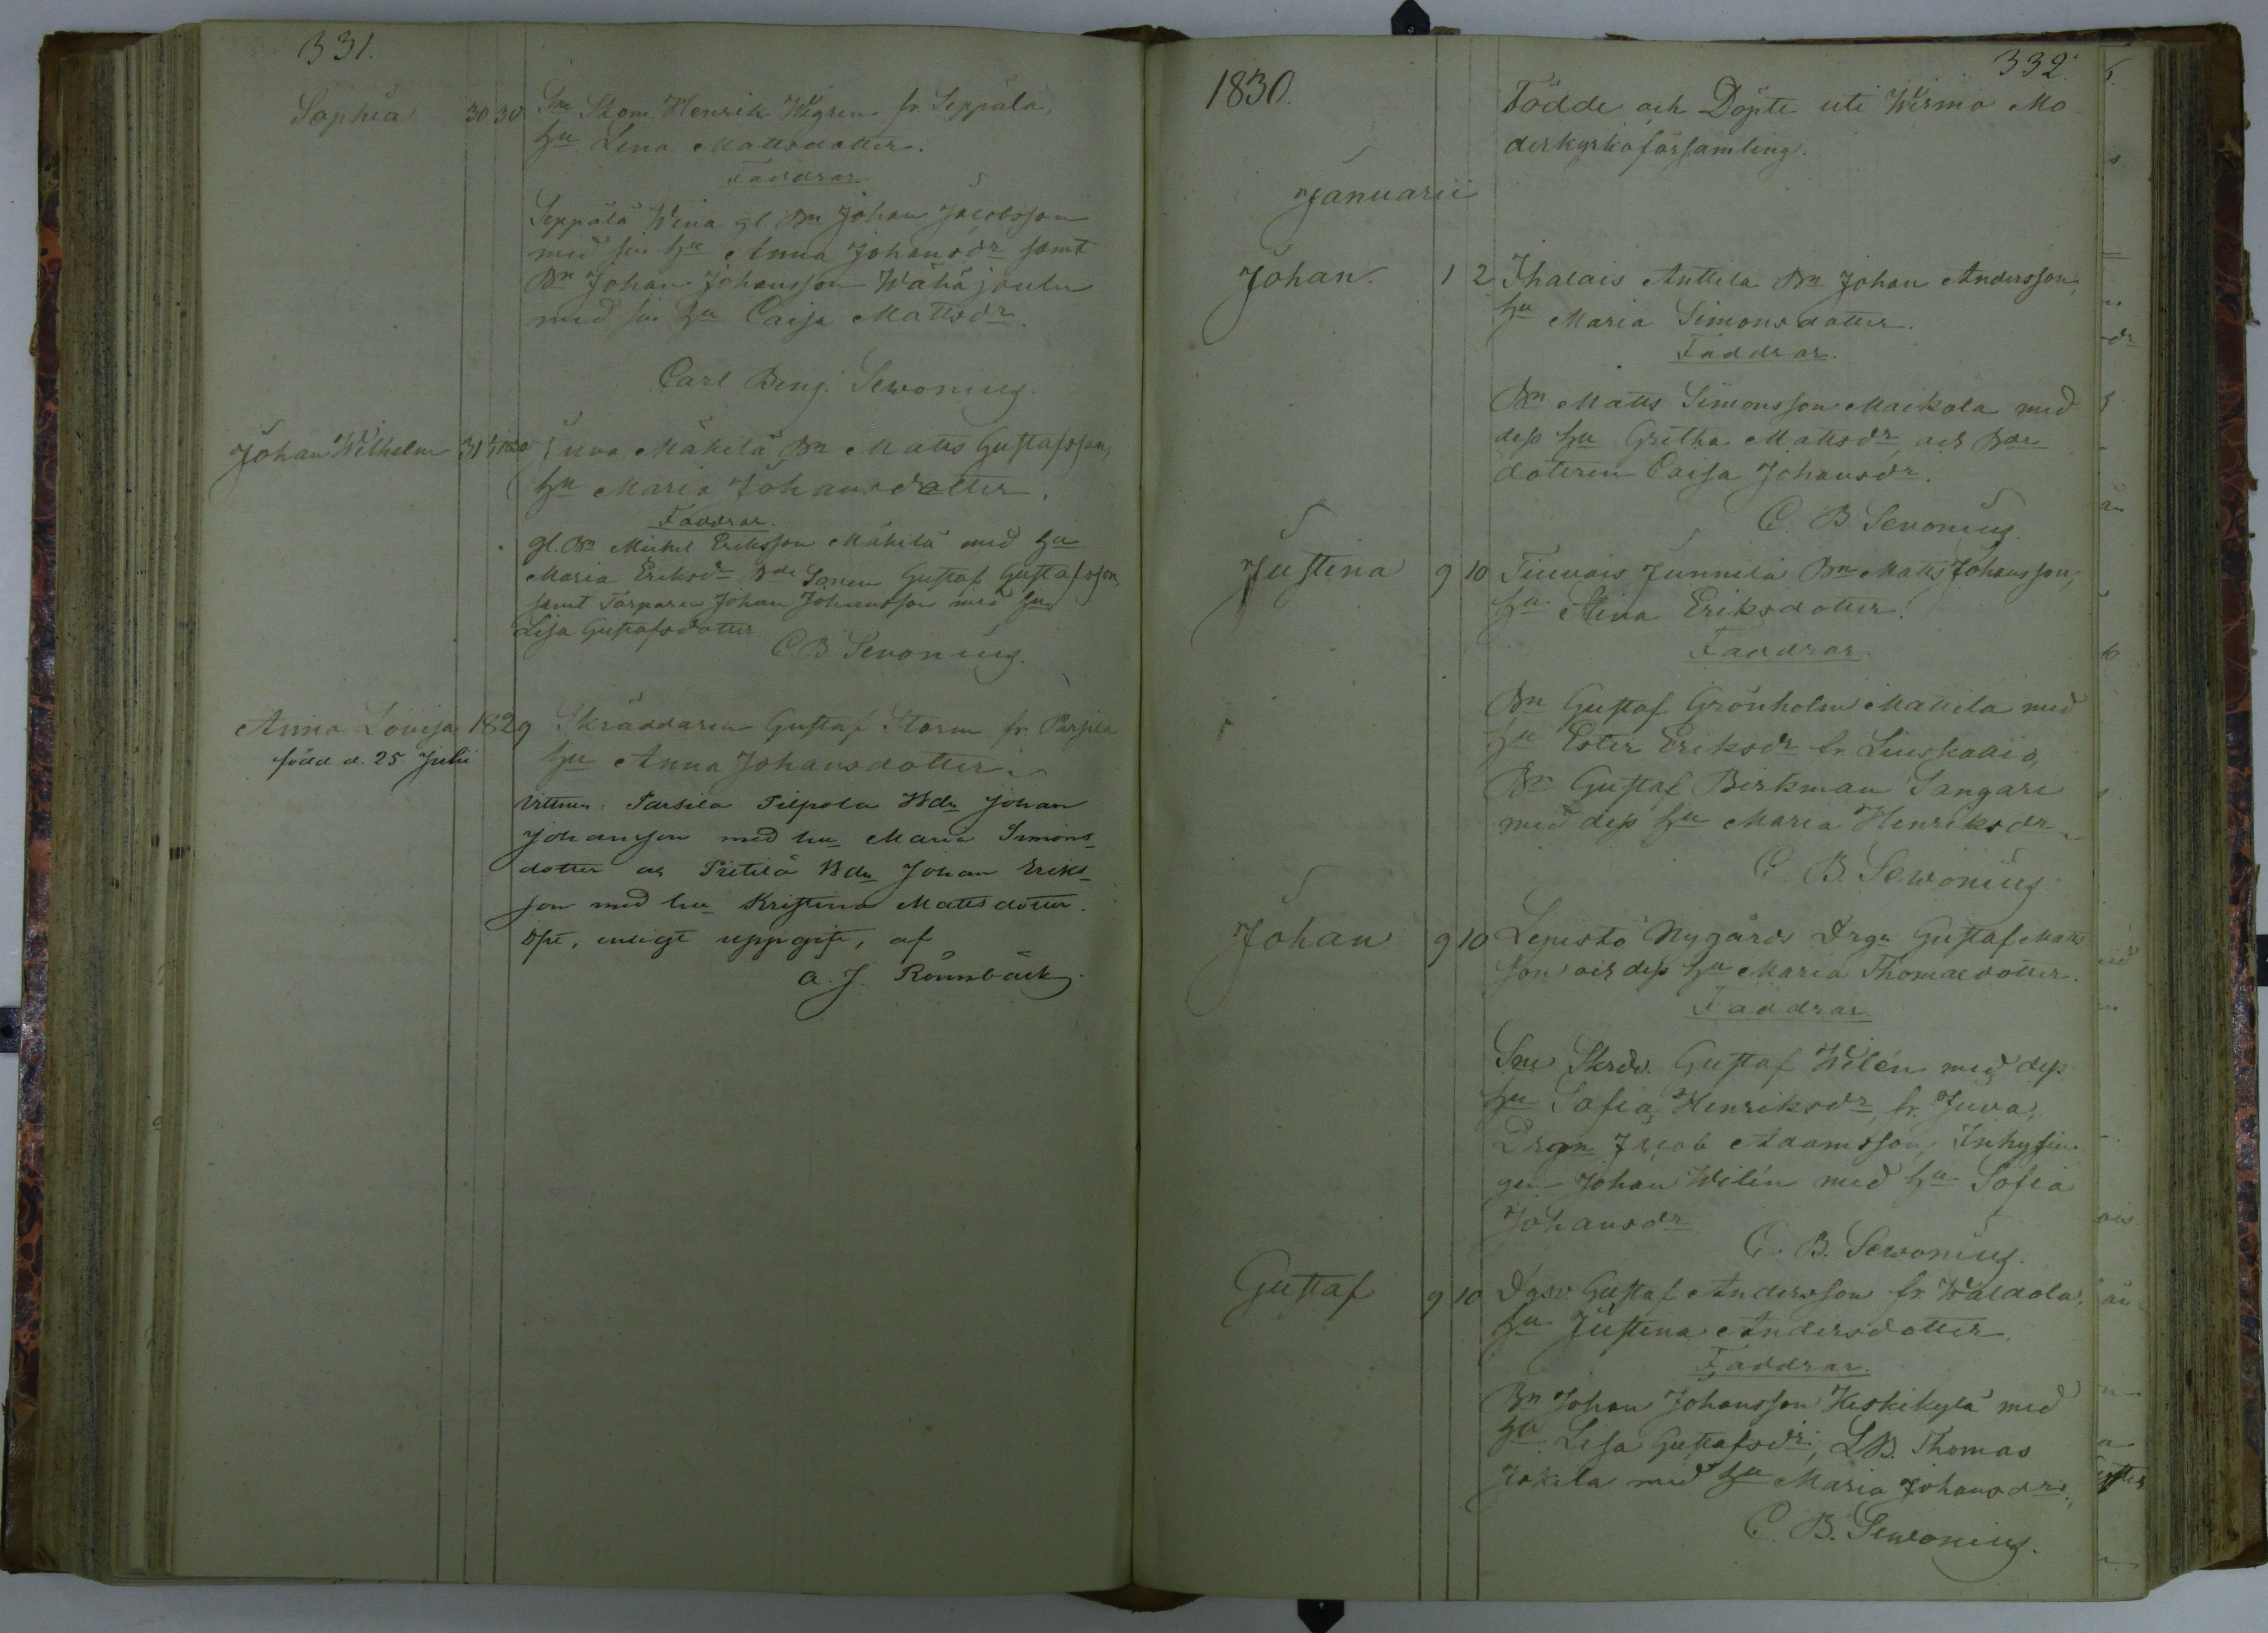 331.
Sophia 30 30 Sn Skom. Henrik Wigren fr. Seppälä,
hu Lena Mattsdotter.
Faddrar.
Seppälä Wena gl. Bn Johan Jacobsson
med sin hu Anna Johansdr samt
Bn Johan Johansson Wähäjoulu
med sin hu Caisa Mattsdr.
Carl Benj. Sewonius.
Johan Wilhelm 31 1/1 1830 Juva Mäkelä Bn Matts Gustafsson,
hu Maria Johansdotter.
Faddrar.
gl. Bn Michel Eriksson Mäkilä med hu
Maria Eriksdr Bde Sonen Gustaf Gustafsson,
samt Torparen Johan Johansson med hu
Lisa Gustafsdotter.
C. B. Sevonius.
Anna Lovisa 1829 Skräddaren Gustaf Storm fr. Parsila
född d. 25 Julii hu Anna Johansdotter.
Vittnen: Parsila Pilpola Bdn Johan
Johansson med hu Maria Simons-
dotter os Pietilä Bdn Johan Eriks-
son med hu Kristina Mattsdotter.
Dpt, enligt uppgift, af
A. J. Rönnbäck.
1830. 332.
Födde och Döpte uti Wirmo Mo-
derkyrkoförsamling.
Januarii
Johan. 1 2 Ihalais Anttila Bn Johan Andersson,
hu Maria Simonsdotter.
Faddrar.
Bn Matts Simonsson Maikola med
dess hu Gretha Mattsdr, och Bde
doteren Caisa Johansdr.
C. B. Sevonius.
Justina 9 10 Tiuvais Junnila Bn Matts Johansson,
hu Stina Eriksdotter.
Faddrar.
Bn Gustaf Grönholm Mattila med
hu Ester Eriksdr fr. Liuskallio,
Bn Gustaf Birkman Sangari
med dess hu Maria Henriksdr.
C. B. Sewonius
Johan 9 10 Lepistö Nygårds Drgn Gustaf Matts
son och dess hu Maria Thomasdotter.
Faddrar.
Sn Skrdd. Gustaf Wilén med dess
hu Sofia Henriksdr, fr. Juva,
Drgn Jacob Adamsson, Inhysin-
gen Johan Wilén med hu Sofia
Johansdr
C. B. Sewonius.
Gustaf 9 10 Gustaf Andersson fr. Waldola,
hu Justina Andersdotter.
Faddrar.
Bn Johan Johansson Keskikylä med
hu Lisa Gustafsdr; LB. Thomas
Jokila med hu Maria Johansdr.,
C. B. Sewonius.